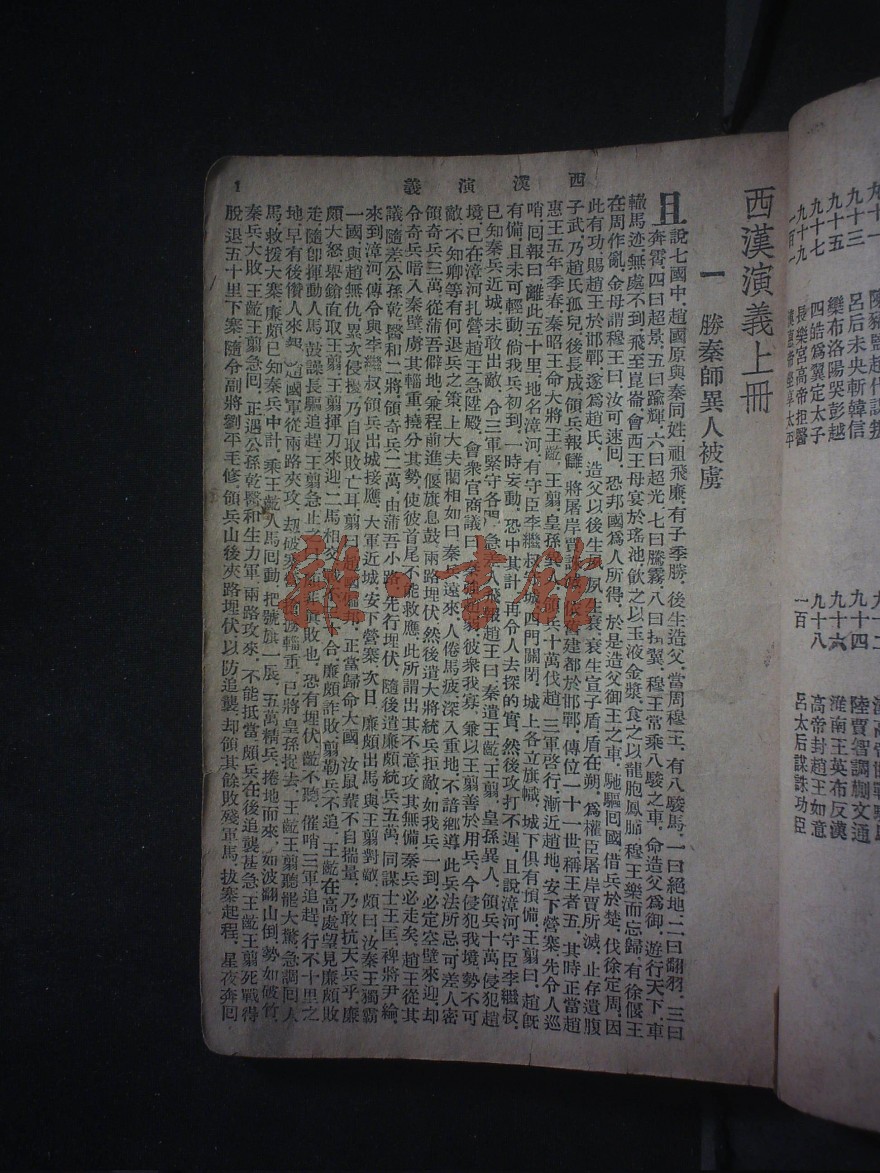 九十三
九十五
九十七
九十九
呂后未央斬韓信
欒布洛陽哭彭越
四皓爲翼定太子
長樂宮高帝拒醫
九十四
九十六
九十八
一百
陸賈智調蒯文通
淮南王英布反漢
高帝封趙王如意
呂太后謀誅功臣
西漢演義上冊
一 勝秦師異人被虜
西漢演義
1
且說七國中,趙國原與秦同姓,祖飛廉,有子季勝,後生造父,當周穆王,有八駿馬,一曰絕地,二曰翻羽,三曰
奔霄,四曰超景,五曰踰輝,六曰超光,七曰騰霧,八曰 翼,穆王常乘八駿之車,命造父爲御,遊行天下,車
轍馬迹無處不到,飛至崑崙,會西王母,宴於瑤池,飲之以玉液金漿,食之以龍胞鳳肺,穆王樂而忘歸,有徐偃王
在周作亂,金母謂穆王曰,汝可速回,恐邦國爲人所得,於是造父御王之車,馳驅回國,借兵於楚,伐徐定周,因
此有功,賜趙王於邯鄲,遂爲趙氏,造父以後生 夙,夙生衰,衰生宣子盾,盾在朔,爲權臣屠岸賈所滅,止存遺腹
子武,乃趙氏孤兒,後長成領兵報讎,將屠岸賈 建都於邯鄲,傳位一十一世,稱王者五,其時正當趙
惠王五年季春,秦昭王命大將王齕,王翦,皇孫異人,領兵十萬伐趙,三軍啓行,漸近趙地,安下營寨,先令人巡
哨,回報曰,離此五十里,地名漳河,有守臣李繼叔 城西門關閉,城上各立旗幟,城下俱有預備,王翦曰,趙既
有備,且未可輕動,倘我兵初到,一時妄動,恐中其計,再令人去探的實,然後攻打不遲,且說漳河守臣李繼叔,
已知秦兵近城,未敢出敵,令三軍緊守各門,急 人飛報趙王曰,秦遣王齕,王翦,皇孫異人,領兵十萬,侵犯趙
境,已在漳河扎營,趙王急陞殿,會衆官商議曰, 彼衆我寡,兼以王翦善於用兵,今侵犯我境,勢不可
敵,不知卿等有何退兵之策,上大夫藺相如曰,秦 遠來,人倦馬疲,深入重地,不諳鄉導,此兵法所忌,可差人密
領奇兵三萬,從蒲吾僻地,兼程前進,偃旗息鼓,兩路埋伏,然後遣大將統兵拒敵,如我兵一到,必定空壁來迎,却
令奇兵暗入秦壁,虜其輜重,撓分其勢,使彼首尾不能救應,此所謂出其不意,攻其無備,秦兵必走矣,趙王從其
議,隨差公孫乾醫和二將,領奇兵二萬,由蒲吾小路,先行埋伏,隨後遣廉頗統兵五萬,同謀士王匡,裨將尹綸,
來到漳河,傳令與李繼叔,領兵出城接應,大軍近城,安下營寨,次日,廉頗出馬,與王翦對敵,頗曰,汝秦王獨霸
一國,與趙無仇,累次侵擾,乃自取敗亡耳,翦曰, 正當歸命大國,汝鼠輩不自揣量,乃敢抗天兵乎,廉
頗大怒,舉鎗直取王翦,王翦揮刀來迎,二馬相交, 合,廉頗詐敗,翦勒兵不追,王齕在高處望見廉頗敗
走,隨卽揮動人馬,鼓譟長驅追趕,王翦急止之 非真敗也,恐有埋伏,齕不聽,催哨三軍追趕,行不十里之
地,早有後儹人來報, 趙國軍從兩路夾攻,刼破寨 輜重,已將皇孫捉去,王齕王翦聽罷大驚,急調回人
馬,救援大寨,廉頗已知秦兵中計,乘王齕人馬回動,把號旗一展,五萬精兵,捲地而來,如波翻山倒,勢如破竹,
秦兵大敗,王齕王翦急回,正遇公孫乾醫和生力軍,兩路攻來,不能抵當,頗兵在後追襲甚急,王齕王翦死戰得
脫,退五十里下寨,隨令副將劉平王修,領兵山後夾路埋伏,以防追襲,却領其餘敗殘軍馬,拔寨起程,星夜奔回
雜·書館